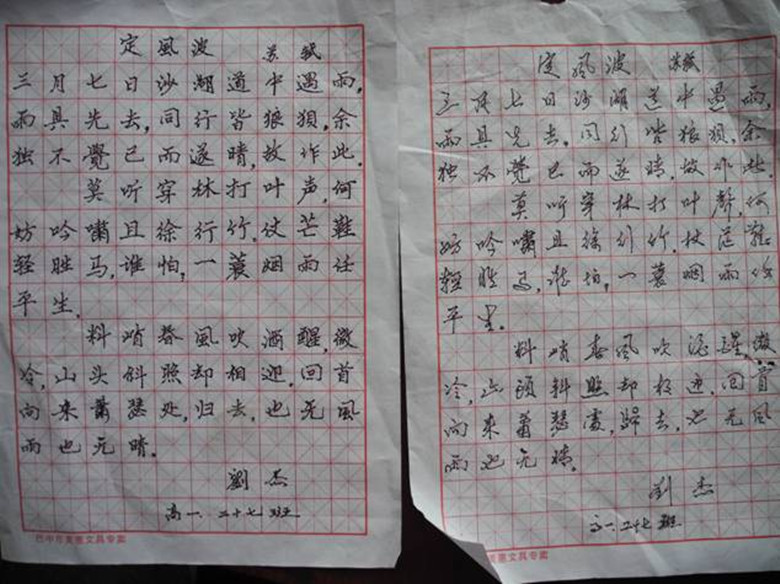 定風波 苏轼
三月七日沙湖道中遇雨,
雨具先去,同行皆狼狽,余
独不覺已而遂晴,故作此.
莫听穿林打叶声,何
妨吟嘯且徐行竹,仗芒鞋
轻胜马,谁怕,一蓑烟雨任
平生.
料峭春風吹酒醒,微
冷,山头斜照却相迎,回首
向来萧瑟处,归去,也无風
雨也无晴.
劉杰
高一.二十七班
巴中市美惠文具专卖
定風波 苏轼
三月七日沙湖道中遇雨,
雨具先去,同行皆狼狽,余
独不覺已而遂晴,故作此.
莫听穿林打叶聲,何
妨吟嘯且徐行竹,杖芒鞋
轻胜马,谁怕,一蓑烟雨任
平生.
料峭春風吹酒醒,微
冷,山頭斜照却相迎,回首
向来萧瑟處,歸去,也无風
雨也无晴.
劉杰
高一.二十七班
美惠文具专卖